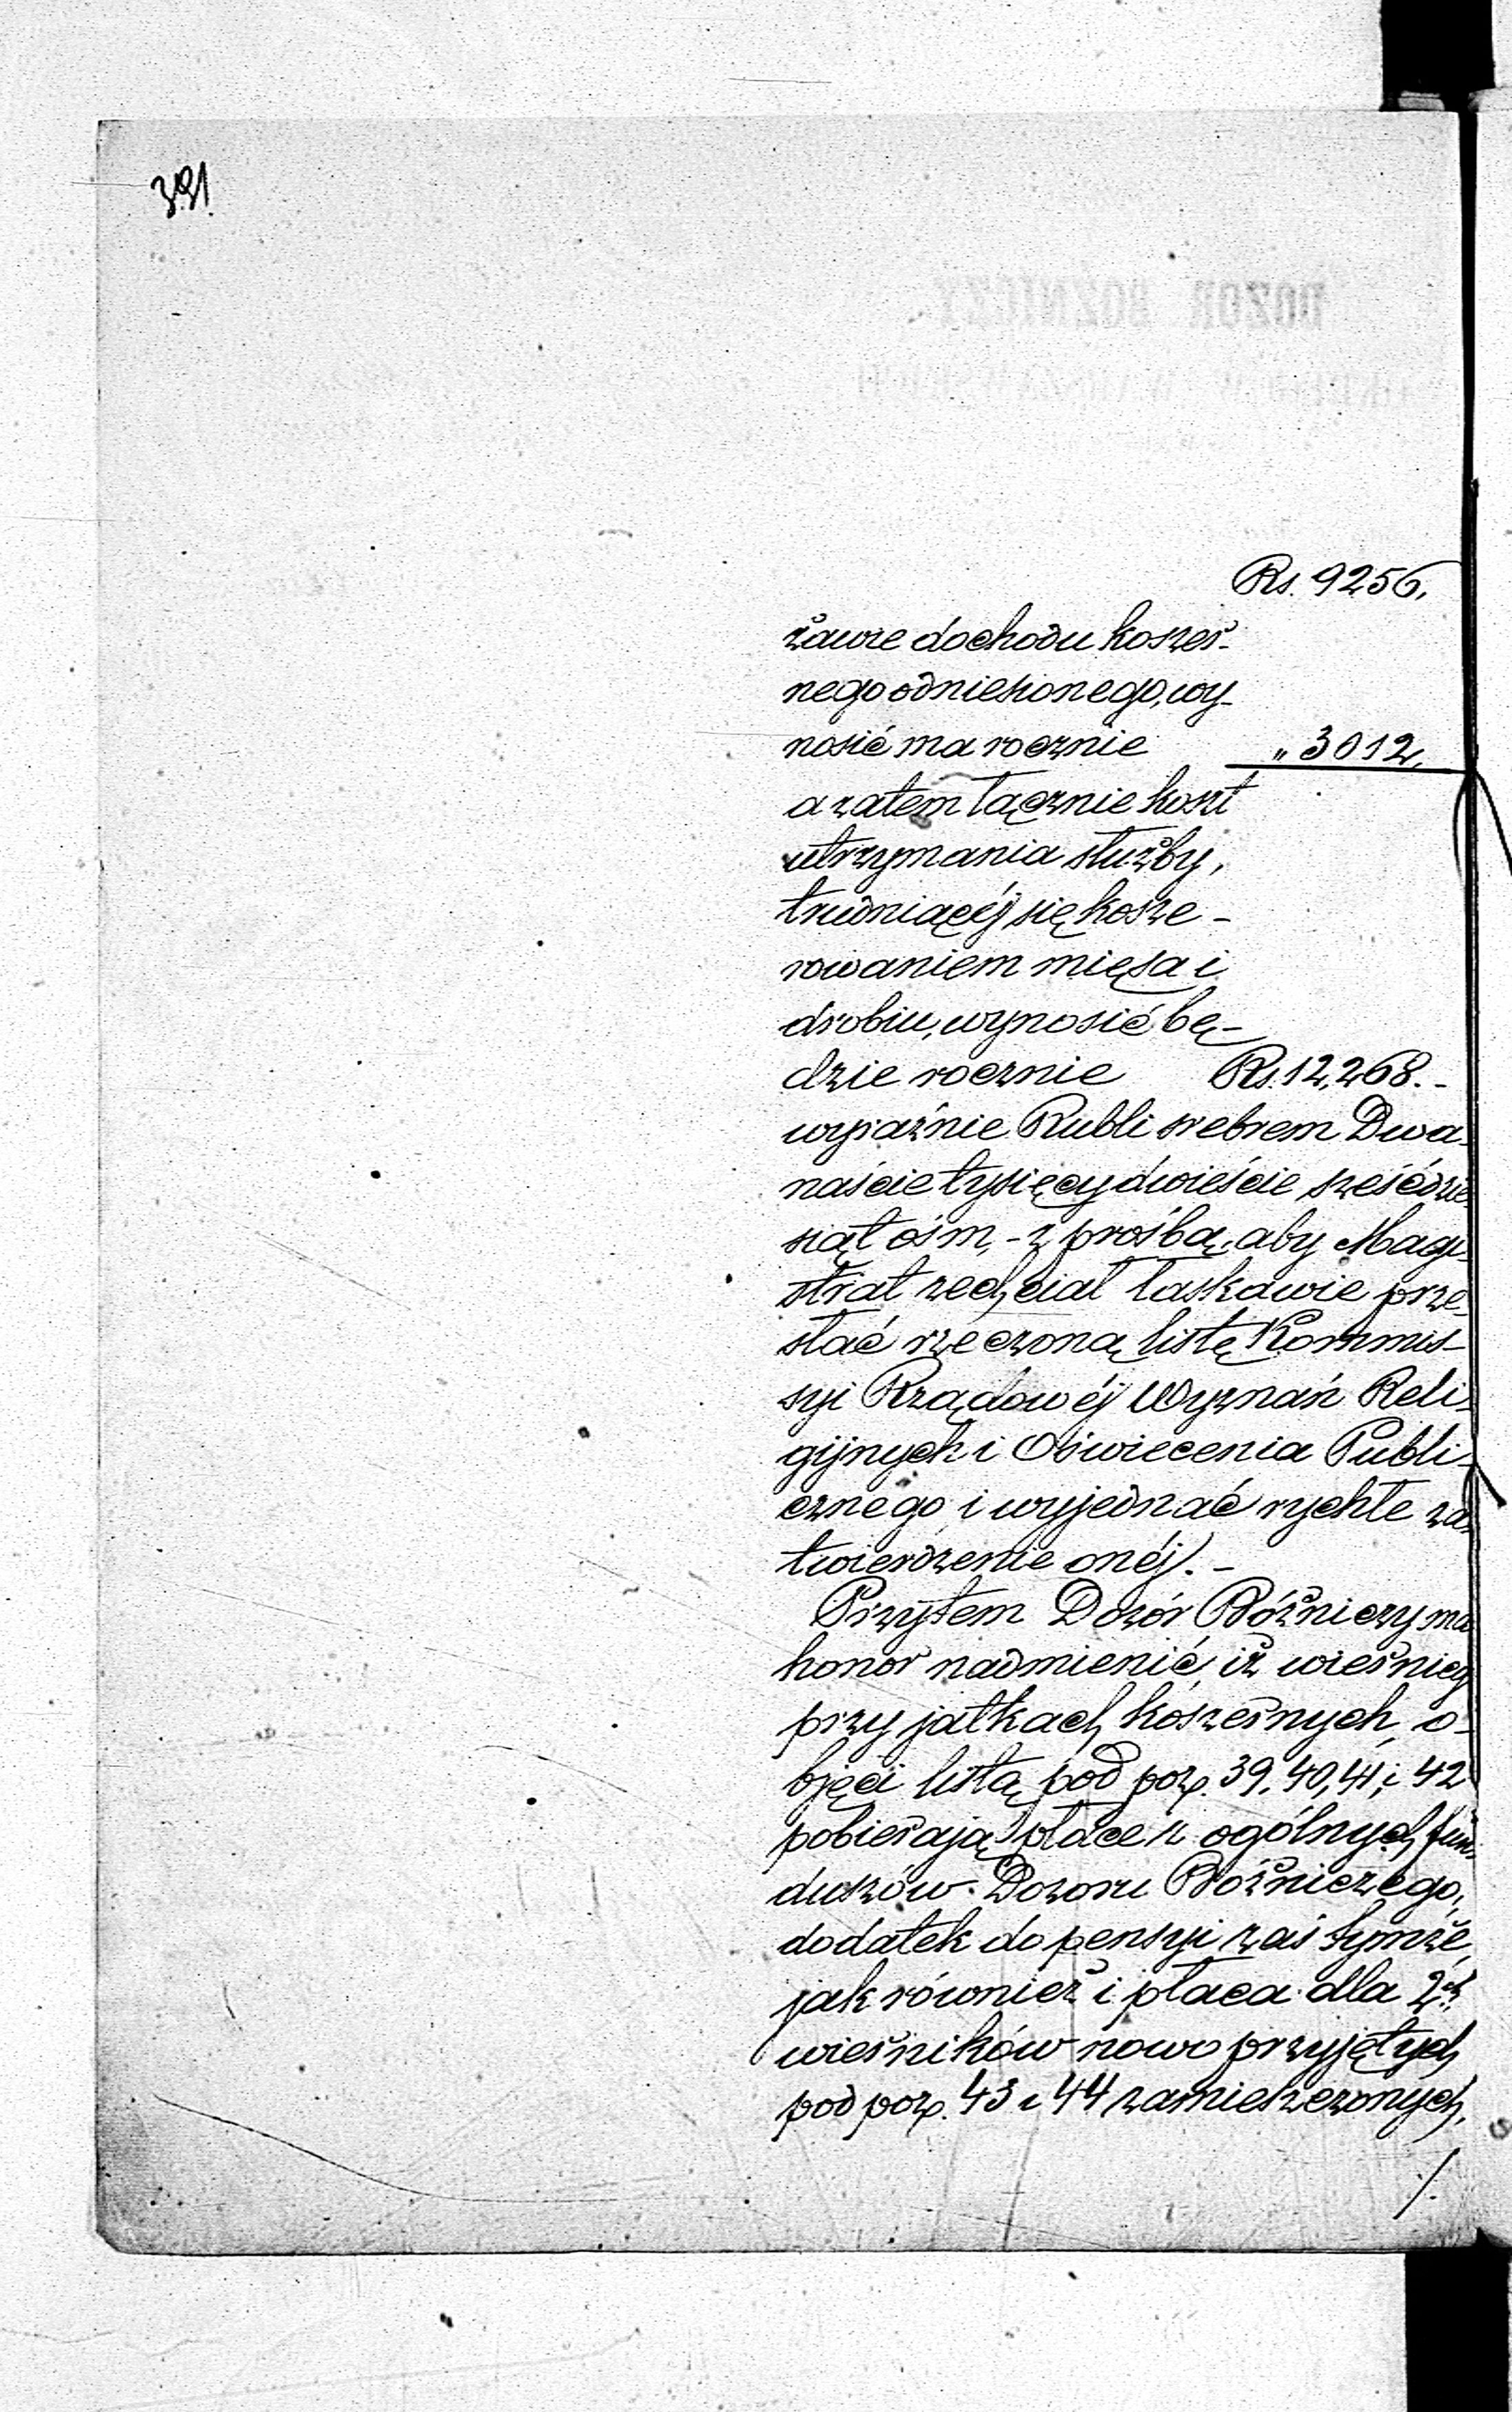 391.
Rs. 9256.
żawie dochodu koszer-
nego odniesionego, wy-
nosić ma rocznie „ 3012.
a zatem łącznie koszt
utrzymania służby,
trudniącéj się kosze-
rowaniem mięsa i
drobiu, wynosić bę-
dzie rocznie Rs. 12,268.-
wyraźnie Rubli srebrem Dwa-
naście tysięcy dwieście sześćdzie-
siąt ośm, - z prośbą, aby Magi-
strat zechciał łaskawie prze-
słać rzeczoną listę Kommis-
syi Rządowéj Wyznań Reli-
gijnych i Oświecenia Publi-
cznego i wyjednać rychłe za-
twierdzenie onéj. -
Przytem Dozór Bóżniczy ma
honor nadmienić, iż wiernicy
przy jatkach koszernych, o-
bjęci listą pod poz. 39, 40, 41, i 42
pobierają płace z ogólnych fun-
duszów Dozoru Bóżniczego,
dodatek do pensyi zaś tymże,
jak również i płaca dla 2ch
wierników nowo przyjętych
pod poz. 43 i 44 zamieszczonych,
./.